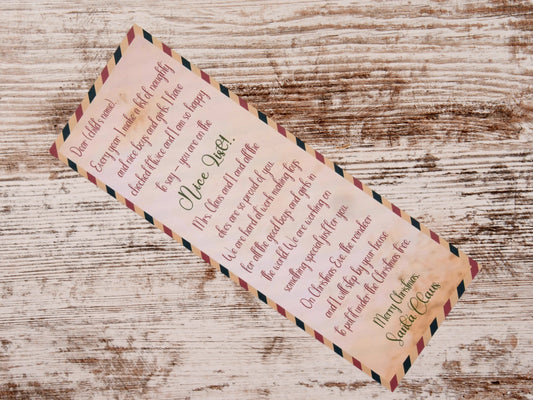 Dear (child's name),
Every year I make a list of naughty
and nice boys and girls. I have
checked it twice and I am so happy
to say - you are on the
Nice List!.
Mrs. Claus and I and all the
elves are so proud of you.
We are hard at work making toys
for all the good boys and girls in
the world. We are working on
something special just for you.
On Christmas Eve, the reindeer
and I will stop by your house
to put it under the Christmas Tree.
Merry Christmas,
Santa Claus